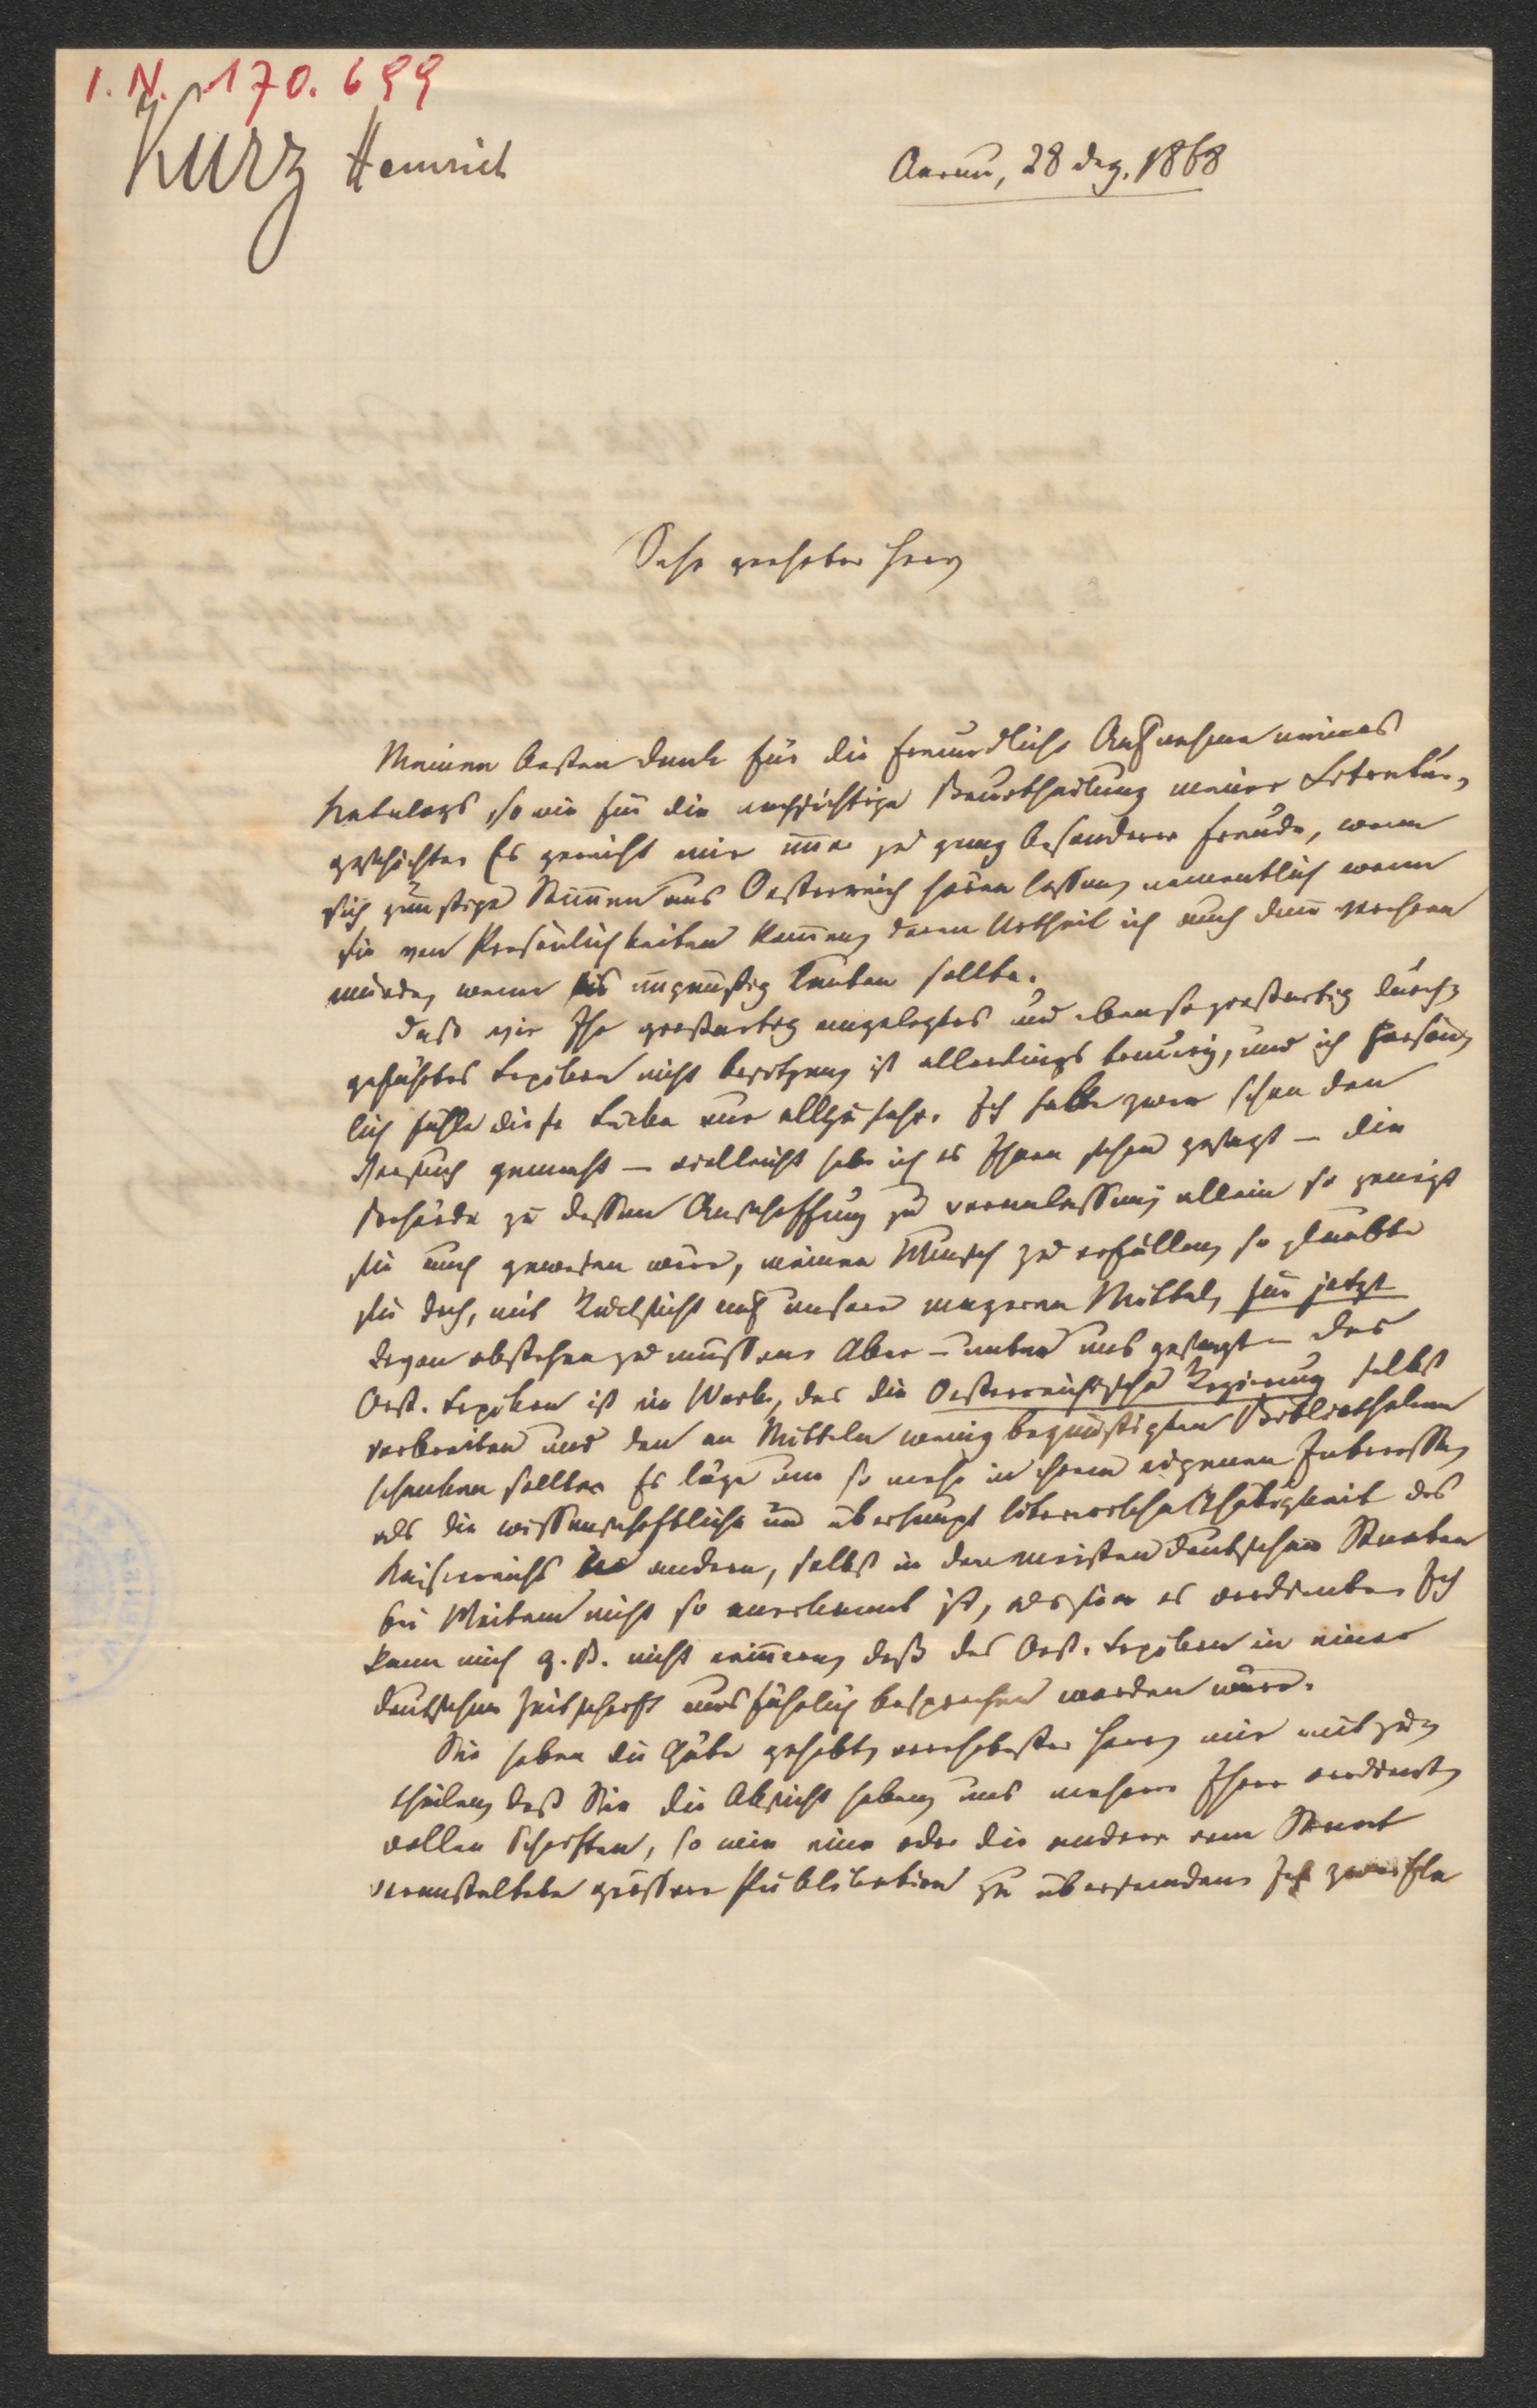 I. N. 170.699
Kurz Heinrich
Aarau, 28 Dez. 1868
Sehr geehrter Herr,
Meinen besten Dank für die freundliche Aufnahme meines
Katalogs, so wie für die nachsichtige Beurtheilung meiner Literatur-
geschichte. Es gereicht mir immer zu ganz besonderer Freude, wenn
sich günstige Stimmen aus Oesterreich hören lassen, namentlich wenn
sie von Persönlichkeiten kommen, deren Urtheil ich auch dann verehren
würde, wenn es ungünstig lauten sollte.
Daß wir Ihr großartig angelegtes und ebenso großartig durch-
geführtes Lexikon nicht besitzen, ist allerdings traurig, und ich persön-
lich fühle diese Lücke nur allzu sehr. Ich habe zwar schon den
Versuch gemacht – vielleicht habe ich es Ihnen schon gesagt – die
Behörde zu dessen Anschaffung zu veranlassen; allein so geneigt
sie auch gewesen wäre, meinen Wunsch zu erfüllen, so glaubte
sie doch, mit Rücksicht auf unsere mageren Mittel, für jetzt
davon abstehen zu müssen. Aber – unter uns gesagt – das
Oest. Lexikon ist ein Werk, das die Oesterreichische Regierung selbst
verbreiten und den an Mitteln wenig begünstigten Bibliotheken
schenken sollte. Es läge um so mehr in ihrem eigenen Interesse,
als die wissenschaftliche und überhaupt literarische Thätigkeit des
Kaiserreichs in andern, selbst in den meisten deutschen Staaten
bei Weitem nicht so anerkannt ist, als sie es verdiente. Ich
kann mich z. B. nicht erinnern, daß das Oest. Lexikon in einer
deutschen Zeitschrift ausführlich besprochen worden wäre.
Sie haben die Güte gehabt, verehrtester Herr, mir mitzu-
theilen, daß Sie die Absicht haben, uns mehrere Ihrer verdienst-
vollen Schriften, so wie eine oder die andere vom Staat
veranstaltete größere Publikation zu übersenden. Ich zweifle